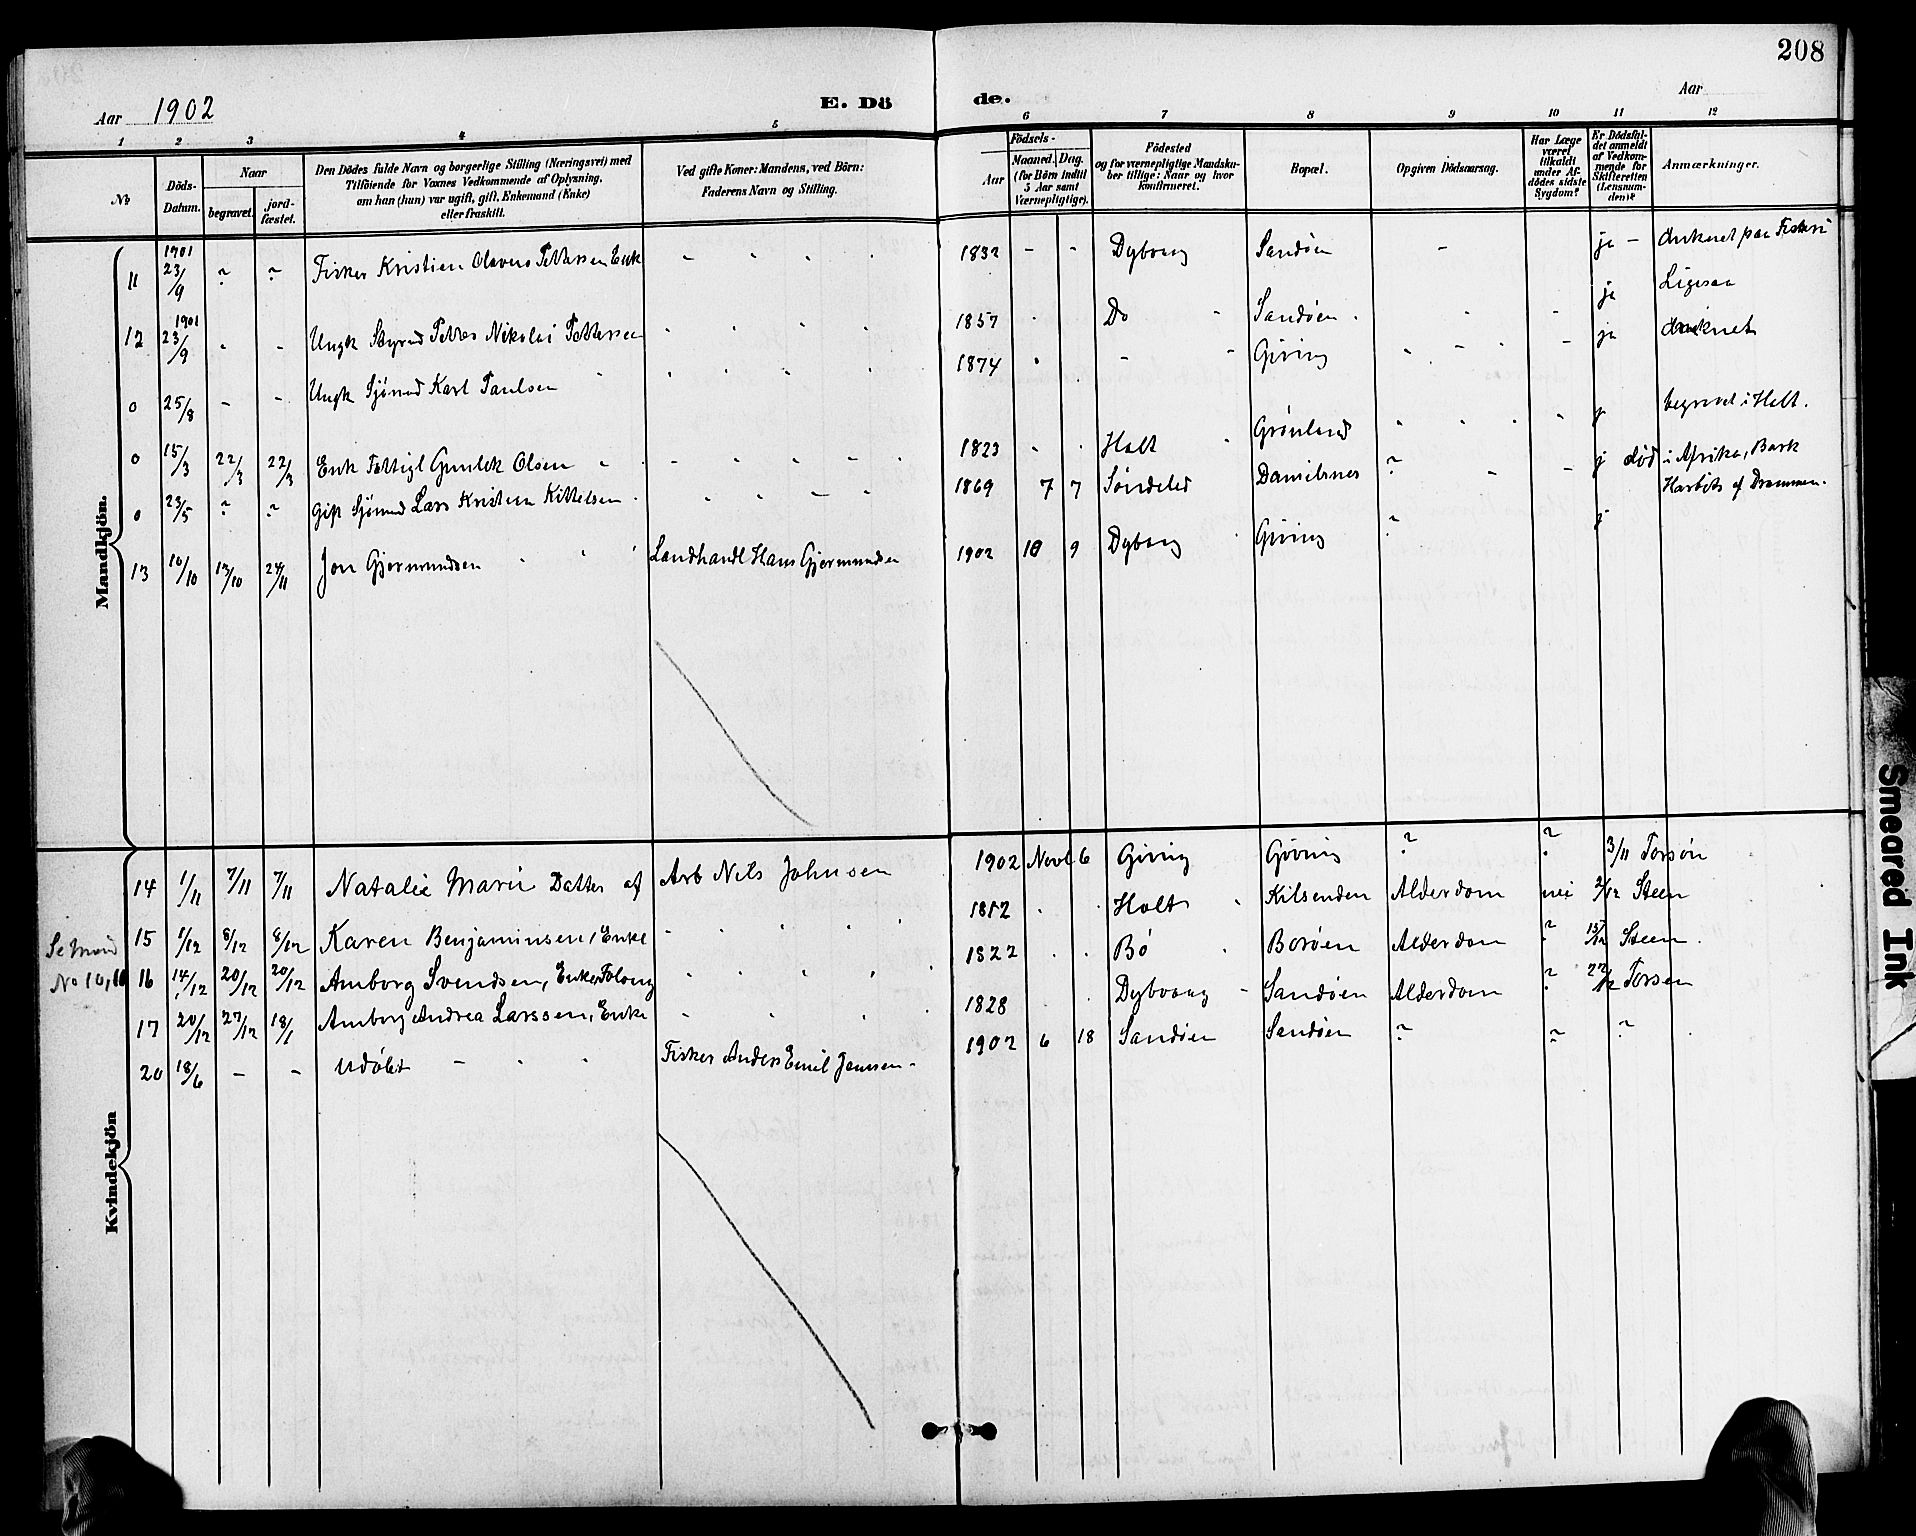 208
Aar 1902
E. Dö
de.
Aar
1 2 3 4 5 6 7 8 9 10 11 12
No
Döds-Datum.
Naar
begravet.
jord-fæstet.
Den Dödes fulde Navn og borgerlige Stilling (Næringsvei) med
Tilföiende for Voxnes Vedkommende af Oplysning,
om han (hun) var ugift, gift, Enkemand (Enke)
eller fraskilt.
Ved gifte Koner: Mandens, ved Börn:
Faderens Navn og Stilling.
Födsels-
Aar
Maaned. Dag.
(for Börn indtil
5 Aar samt
Værnepligtige).
Födested
og for værnepligtige Mandsku-
ber tillige: Naar og hvor
konfirmeret.
Bopæl.
Opgiven Dödsaarsag.
Har Læge
været
tilkaldt
under Af-
dödes sidste
Sygdom?
Er Dödsfal-
det anmeldt
af Vedkom-
mende for
Skifteretten
(Lensman-
den)?
Anmærkninger.
Mandkjön.
11 1901 23/9 ? ? Fisker Kristien Olavus Pettersen Enk - - - - 1832 - - Dybvaag Sandøen - ja - druknet paa Fiskeri
12 1901 23/9 - - Ungk Styrmd Petter Nikolai Pettersen 1857 Do Sandøen ja Ligesaa
0 25/8 - - Ungk Sjömd Karl Paulsen 1874 - Giving ja druknet
0 15/3 22/3 22/3 Enk Fattigl Gunlek Olsen 1823 Holt Grønland j begravet i Holt.
0 23/5 ? ? gift Sjømd Lars Kristien Kittelsen 1869 7 7 Søndeled Danielsnes ? - - j død i Afrika, Bark
Harbitz af Drammen.
13 10/10 13/10 24/11 Jon Gjermundsen Landhandl Hans Gjermundsen 1902 10 9 Dybvaag Giving ? j
Kvindekjön
14 1/11 7/11 7/11 Natalie Marie Datter af Arb Nils Johnsen 1902 Novb 6 Giving Giving ? ? 3/11 Torsøn
15 1/12 8/12 8/12 Karen Benjaminsen, Enke 1812 Holt Kilsenden Alderdom nei 2/12 Steen
Se
No 10,
16 14/12 20/12 20/12 Amborg Svendsen, Enke 1822 Bø Borøen Alderdom ? 15/12 Steen.
17 20/12 27/12 18/1 Amborg Andrea Larssen, Enke 1828 Dybvaag - Sandøen Alderdom ? 22/12 Torsen
20 18/6 - - Udøbt - Fisker Anders Emil Jensen - 1902 6 18 Sandøen Sandøen ? ? ?
Smeared Ink